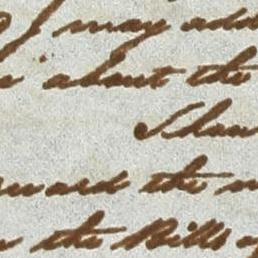 I may add
about the
Shaw
ward the
the Bills